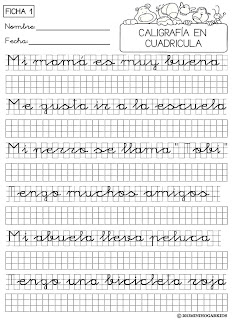 FICHA 1
Nombre:
Fecha:
CALIGRAFÍA EN
CUADRICULA
Mi mamá es muy buena
Me gusta ir a la escuela
Mi perro se llama "Tobi"
Tengo muchos amigos
Mi abuela lleva peluca
Tengo una bicicleta roja